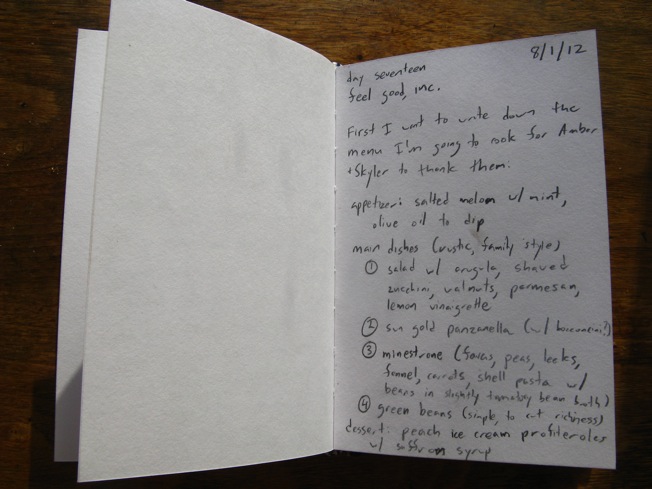 8/1/12
day seventeen
feel good, inc.
First I want to write down the
menu I'm going to cook for Amber
+ Skyler to thank them:
appetizer: salted melon w/ mint,
olive oil to dip
main dishes (rustic, family style)
① salad w/ arugula, shaved
zucchini, walnuts, parmesan,
lemon vinaigrette
② sun gold panzanella (w/ bocconcini?)
③ minestrone (favas, peas, leeks,
fennel, carrots, shell pasta w/
beans in slightly tomatoey bean broth)
④ green beans (simple, to cut richness)
dessert: peach ice cream profiteroles
w/ saffron syrup